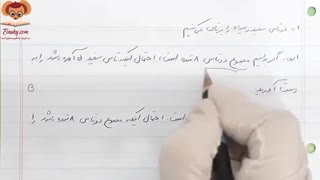 Elmday.com
۱۰ دو تاس سفید و سیاه را پرتاب می کنیم
الف. اگر بدانیم مجموع دو تاس ۸ شده است، احتمال اینکه تاس سفید ۵ آمده باشد را به
دست آورید
B
شده است، احتمال اینکه مجموع دو تاس ۸ شده باشد را